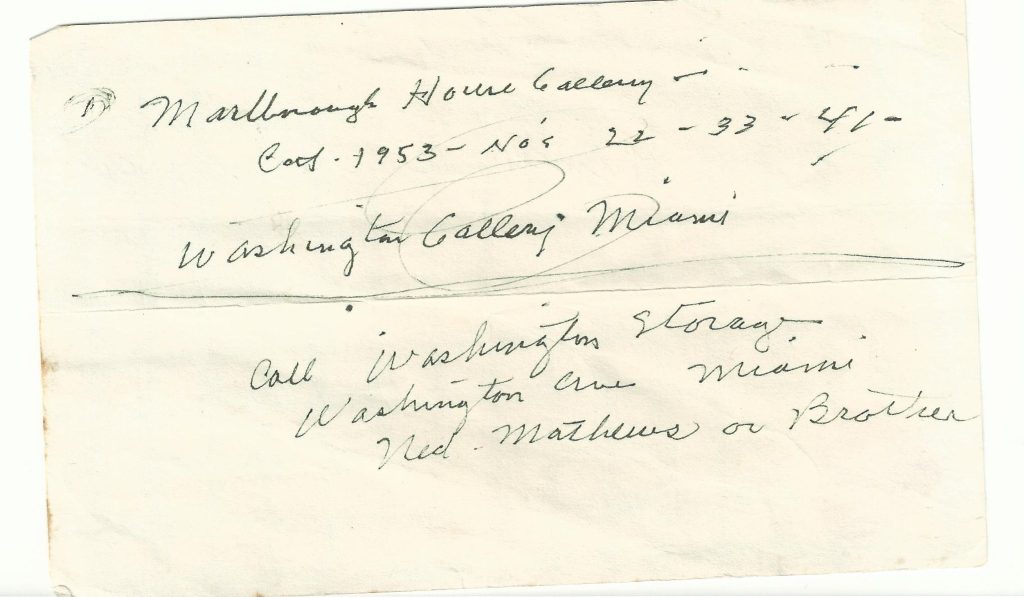 Marlborough House Gallery -
Cat. 1953 - No's 22 - 33 - 41 -
Washington Gallery Miami
Call Washington Storage
Washington Ave Miami
Ned. Mathews or Brother